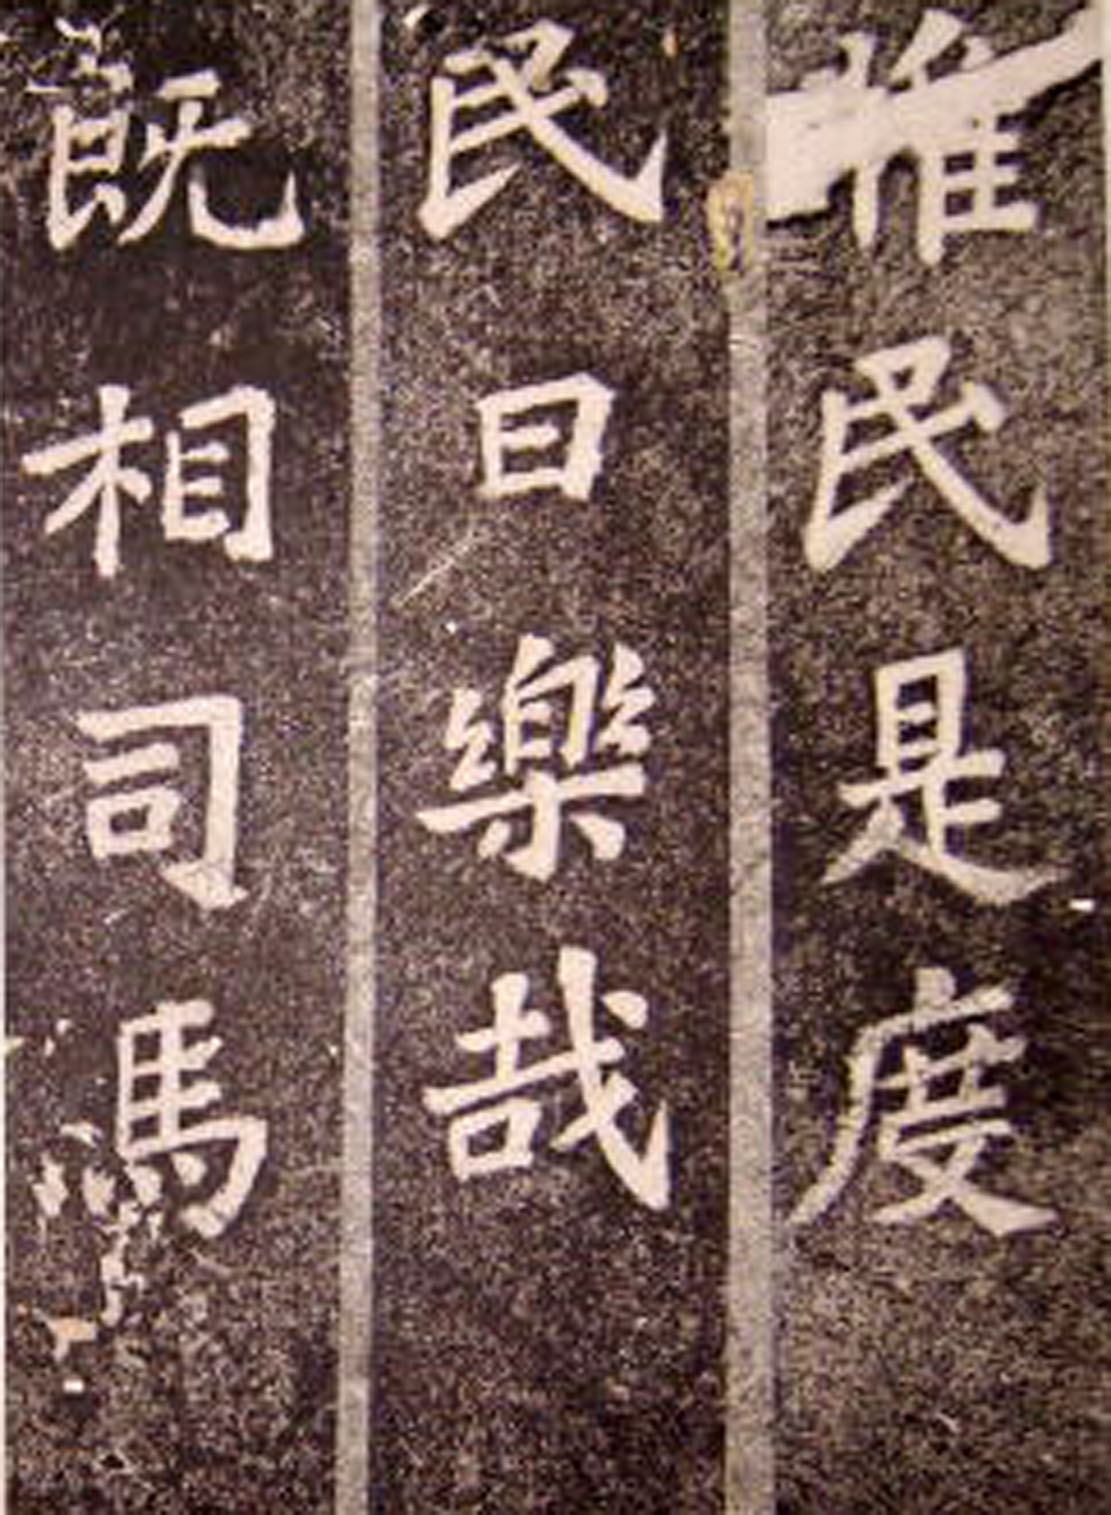 惟民是度
民曰樂哉
既相司馬